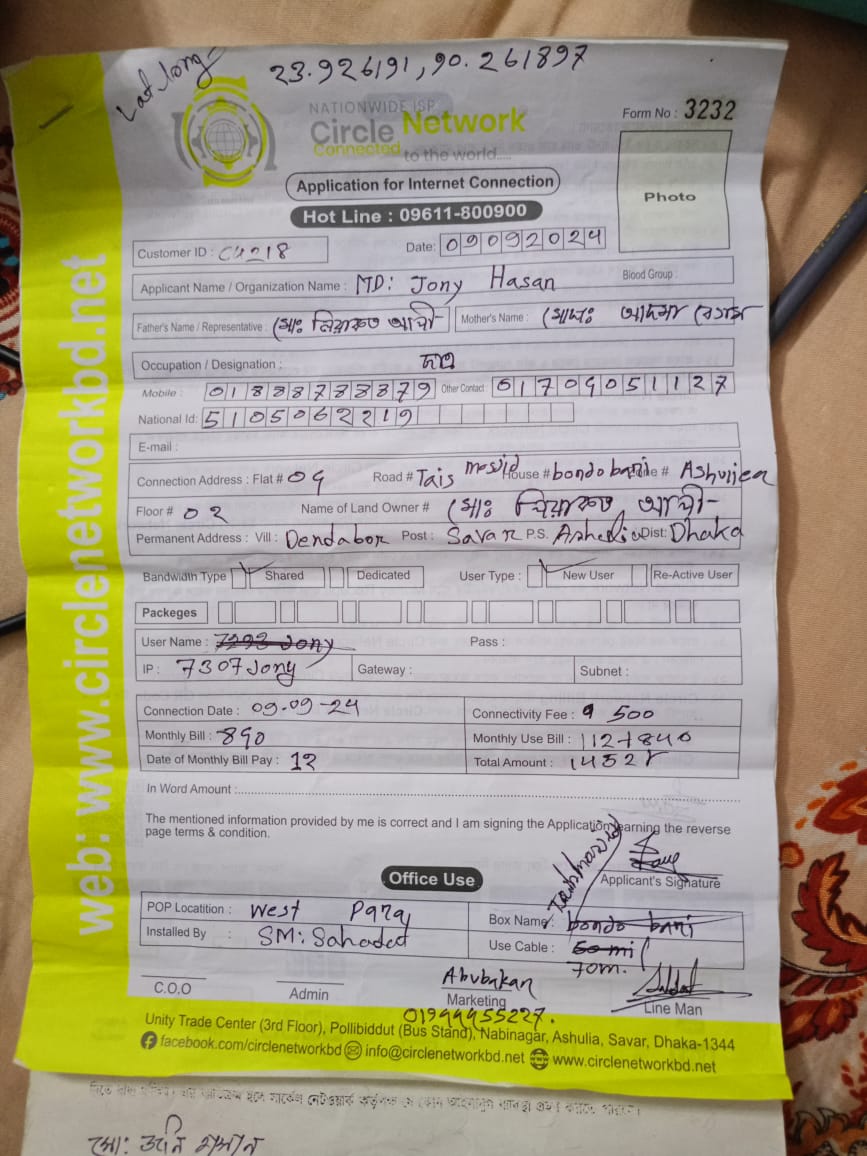 Lat, long - 23.926191, 90.261897
NATIONWIDE ISP
Circle Network
Connected to the world.....
Form No : 3232
Photo
Application for Internet Connection
Hot Line : 09611-800900
Customer ID : C4218 Date: 09092024
Applicant Name / Organization Name : MD: Jony Hasan Blood Group :
Father's Name / Representative : মোঃ লিয়াকত আলী Mother's Name : মোছাঃ
Occupation / Designation :
Mobile : 01888788879 Other Contact 01709051127
National Id: 5105062219
E-mail :
Connection Address : Flat # 09 Road # Tais mosjid House # bondo bari # Ashuliea
Floor # 02 Name of Land Owner # মোঃ লিয়াকত আলী
Permanent Address : Vill : Dendabor Post : Savar P.S. Ashulia Dist: Dhaka
Bandwidth Type Shared Dedicated User Type : New User Re-Active User
Packeges
User Name : 7293 Jony Pass :
IP : 7307Jony Gateway : Subnet :
Connection Date : 09-09-24 Connectivity Fee : 500
Monthly Bill : 890 Monthly Use Bill : 112+840
Date of Monthly Bill Pay : 12 Total Amount : 1452
In Word Amount :
The mentioned information provided by me is correct and I am signing the Application learning the reverse
page terms & condition.
Applicant's Signature
Office Use
POP Locatition : West Para Box Name : bondo bari
Installed By : SM: Sahadat Use Cable : 50 mi
70m.
C.O.O Admin Abubakar Marketing Line Man
01999955227.
Unity Trade Center (3rd Floor), Pollibiddut (Bus Stand), Nabinagar, Ashulia, Savar, Dhaka-1344
facebook.com/circlenetworkbd info@circlenetworkbd.net www.circlenetworkbd.net
web: www.circlenetworkbd.net
মো: জনি হাসান